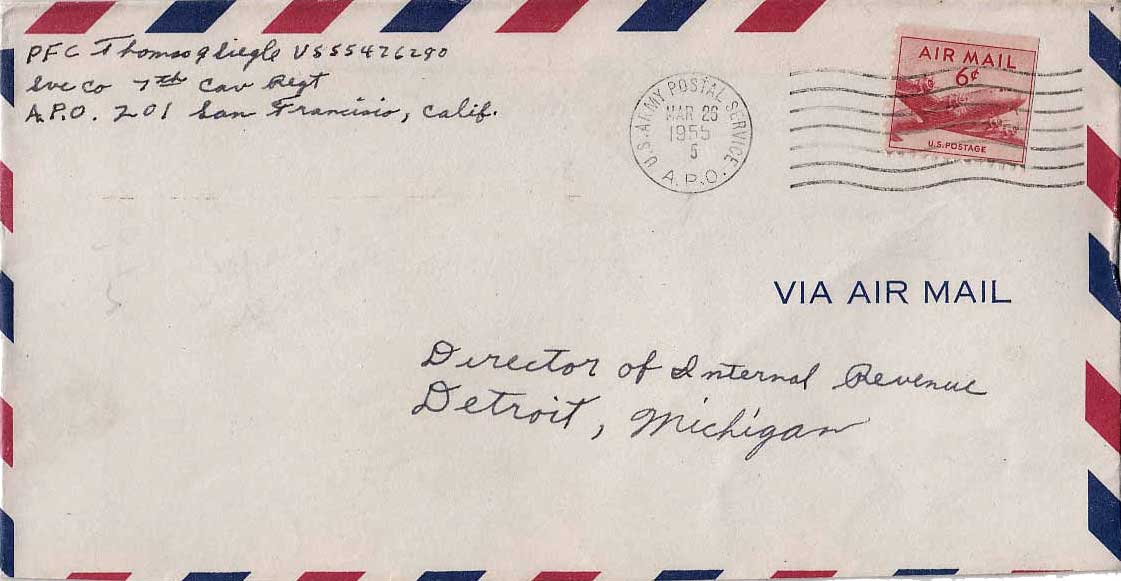 PFC Thomas US55476290
Svc Co 7th Cav Regt
A.P.O. 201 San Francisio, Calif.
U.S. ARMY POSTAL SERVICE
MAR 26
1955
5
A.P.O.
AIR MAIL
6¢
U.S. POSTAGE
VIA AIR MAIL
Director of Internal Revenue
Detroit, Michigan